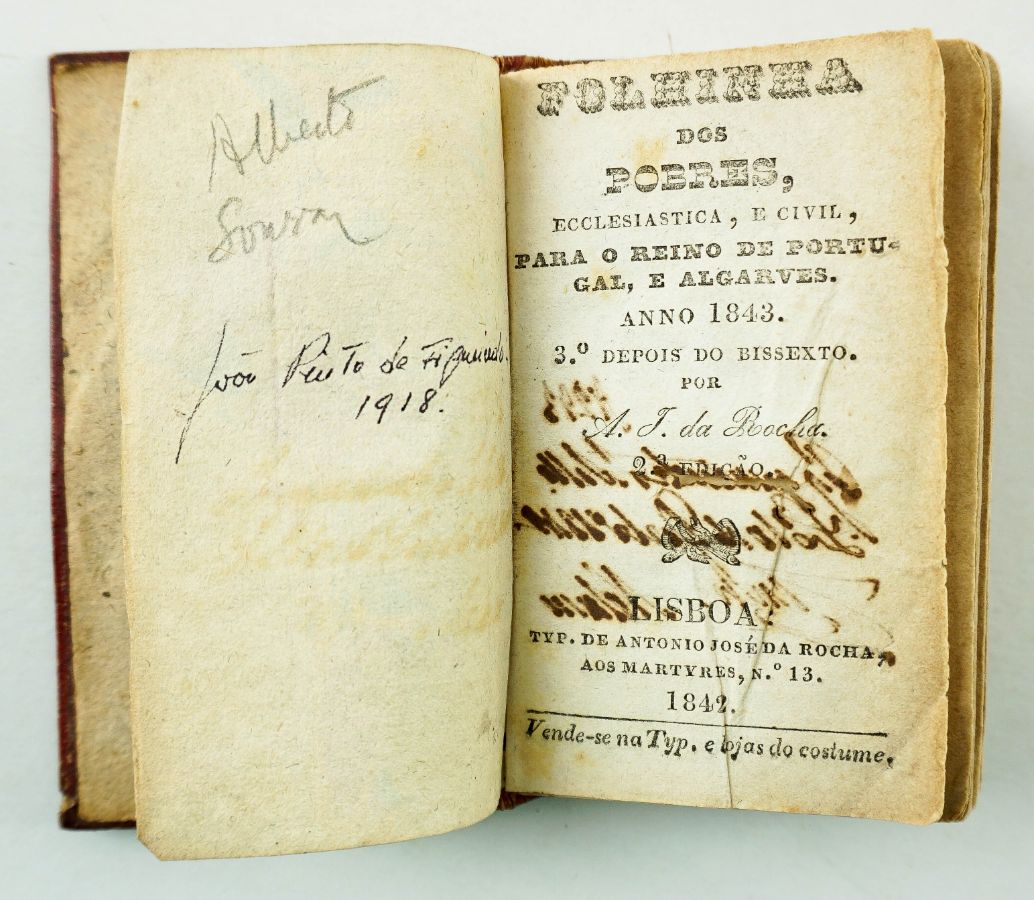 Alberto
Souza
João Pinto de Figueiredo.
1918.
FOLHINHA
DOS
POBRES,
ECCLESIASTICA, E CIVIL,
PARA O REINO DE PORTU-
GAL, E ALGARVES.
ANNO 1843.
3.º DEPOIS DO BISSEXTO.
POR
A. J. da Rocha.
2.ª EDIÇÃO.
LISBOA:
TYP. DE ANTONIO JOSÉ DA ROCHA,
AOS MARTYRES, N.º 13.
1842.
Vende-se na Typ. e lojas do costume.